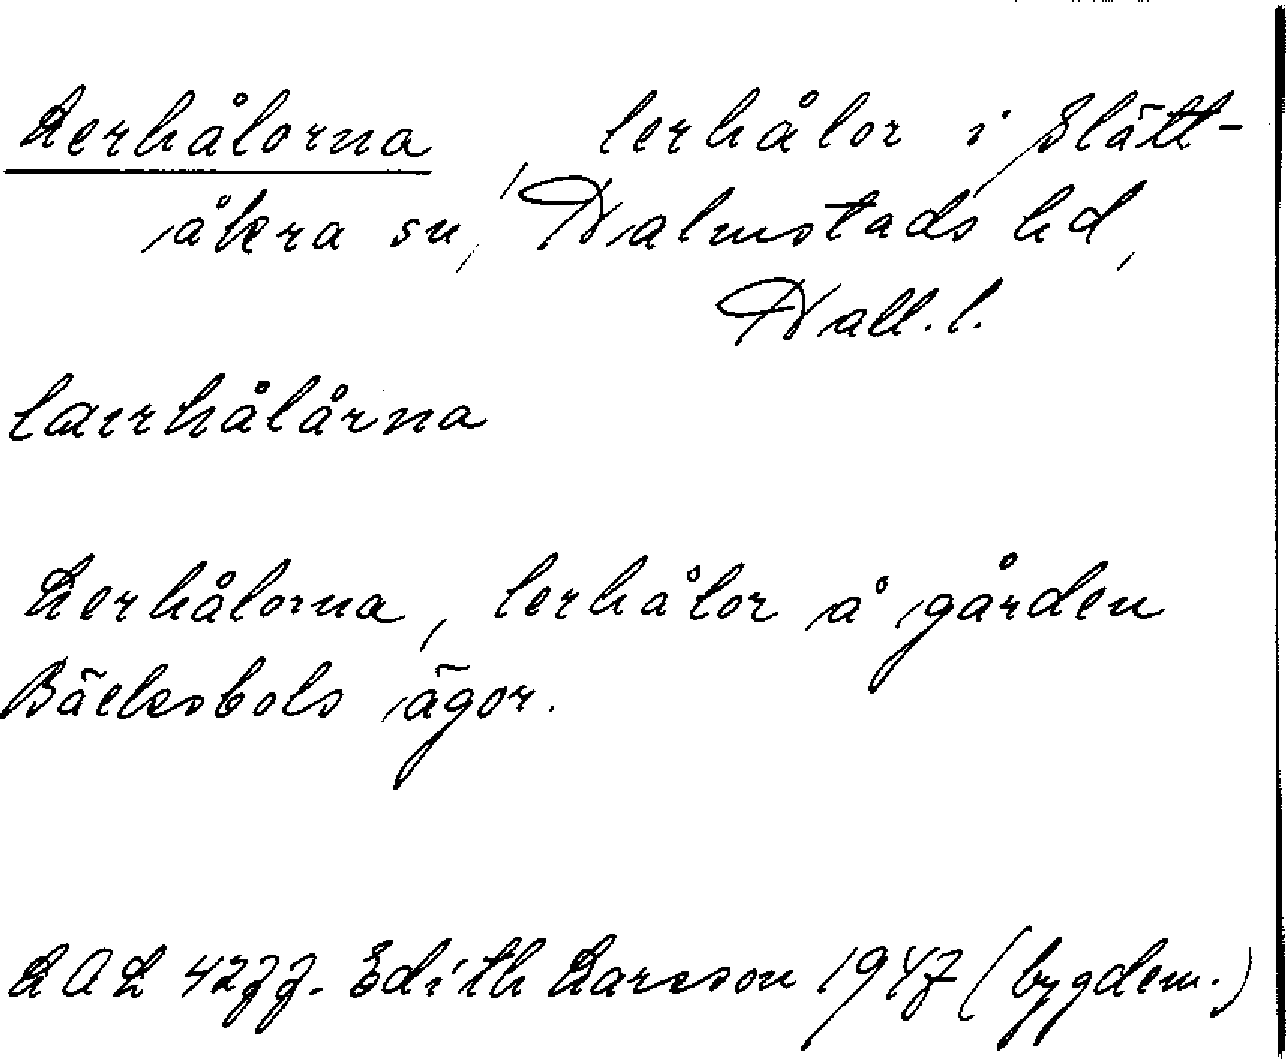 Lerhålorna, lerhålor i Slätt-
åkra sn, Halmstads hd,
Hall. l.
laerhålårna
Lerhålorna, lerhålor å gården
Bäcksbols ägor.
LAL 4277. Edith Larsson 1947 (bygdem.)